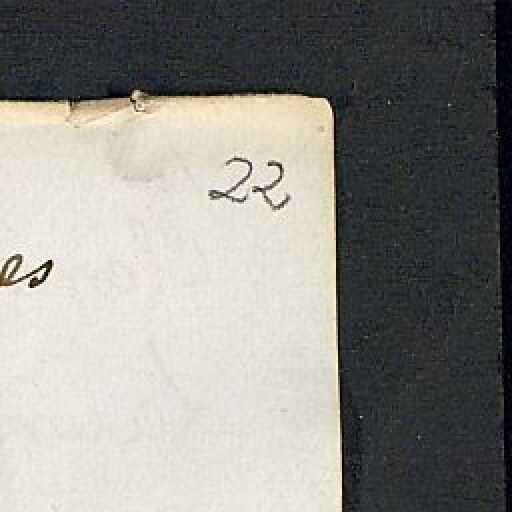 22
es